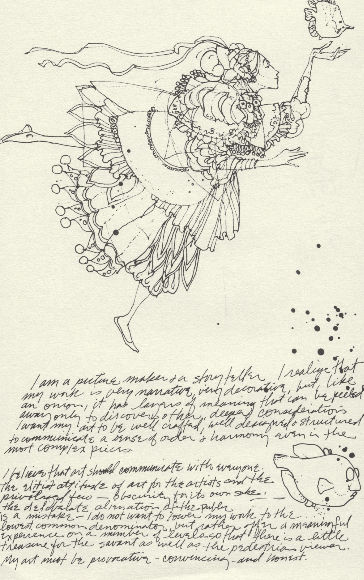 I am a picture maker & a storyteller. I realize that
my work is very narrative, very decorative, but, like
an onion, it has layers of meaning that can be peeled
away only to discover other, deeper considerations
I want my art to be well crafted, well designed & structured
to communicate a sense of order & harmony even in the
most complex pieces
I believe that art should communicate with everyone.
the elitist attitude of art for the artists and the
privileged few - obscurity for its own sake.
the deliberate alienation of the public
is a mistake - I do not want to lower my work to the
lowest common denominator, but rather offer a meaningful
experience on a number of levels so that there is a little
treasure for the savant as well as the pedestrian viewer.
My art must be provocative - convincing - and honest.